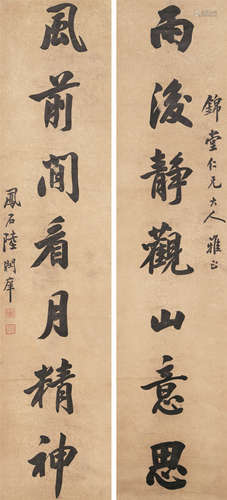 錦堂仁兄大人雅正
雨後靜觀山意思
風前閒看月精神
鳳石陸潤庠